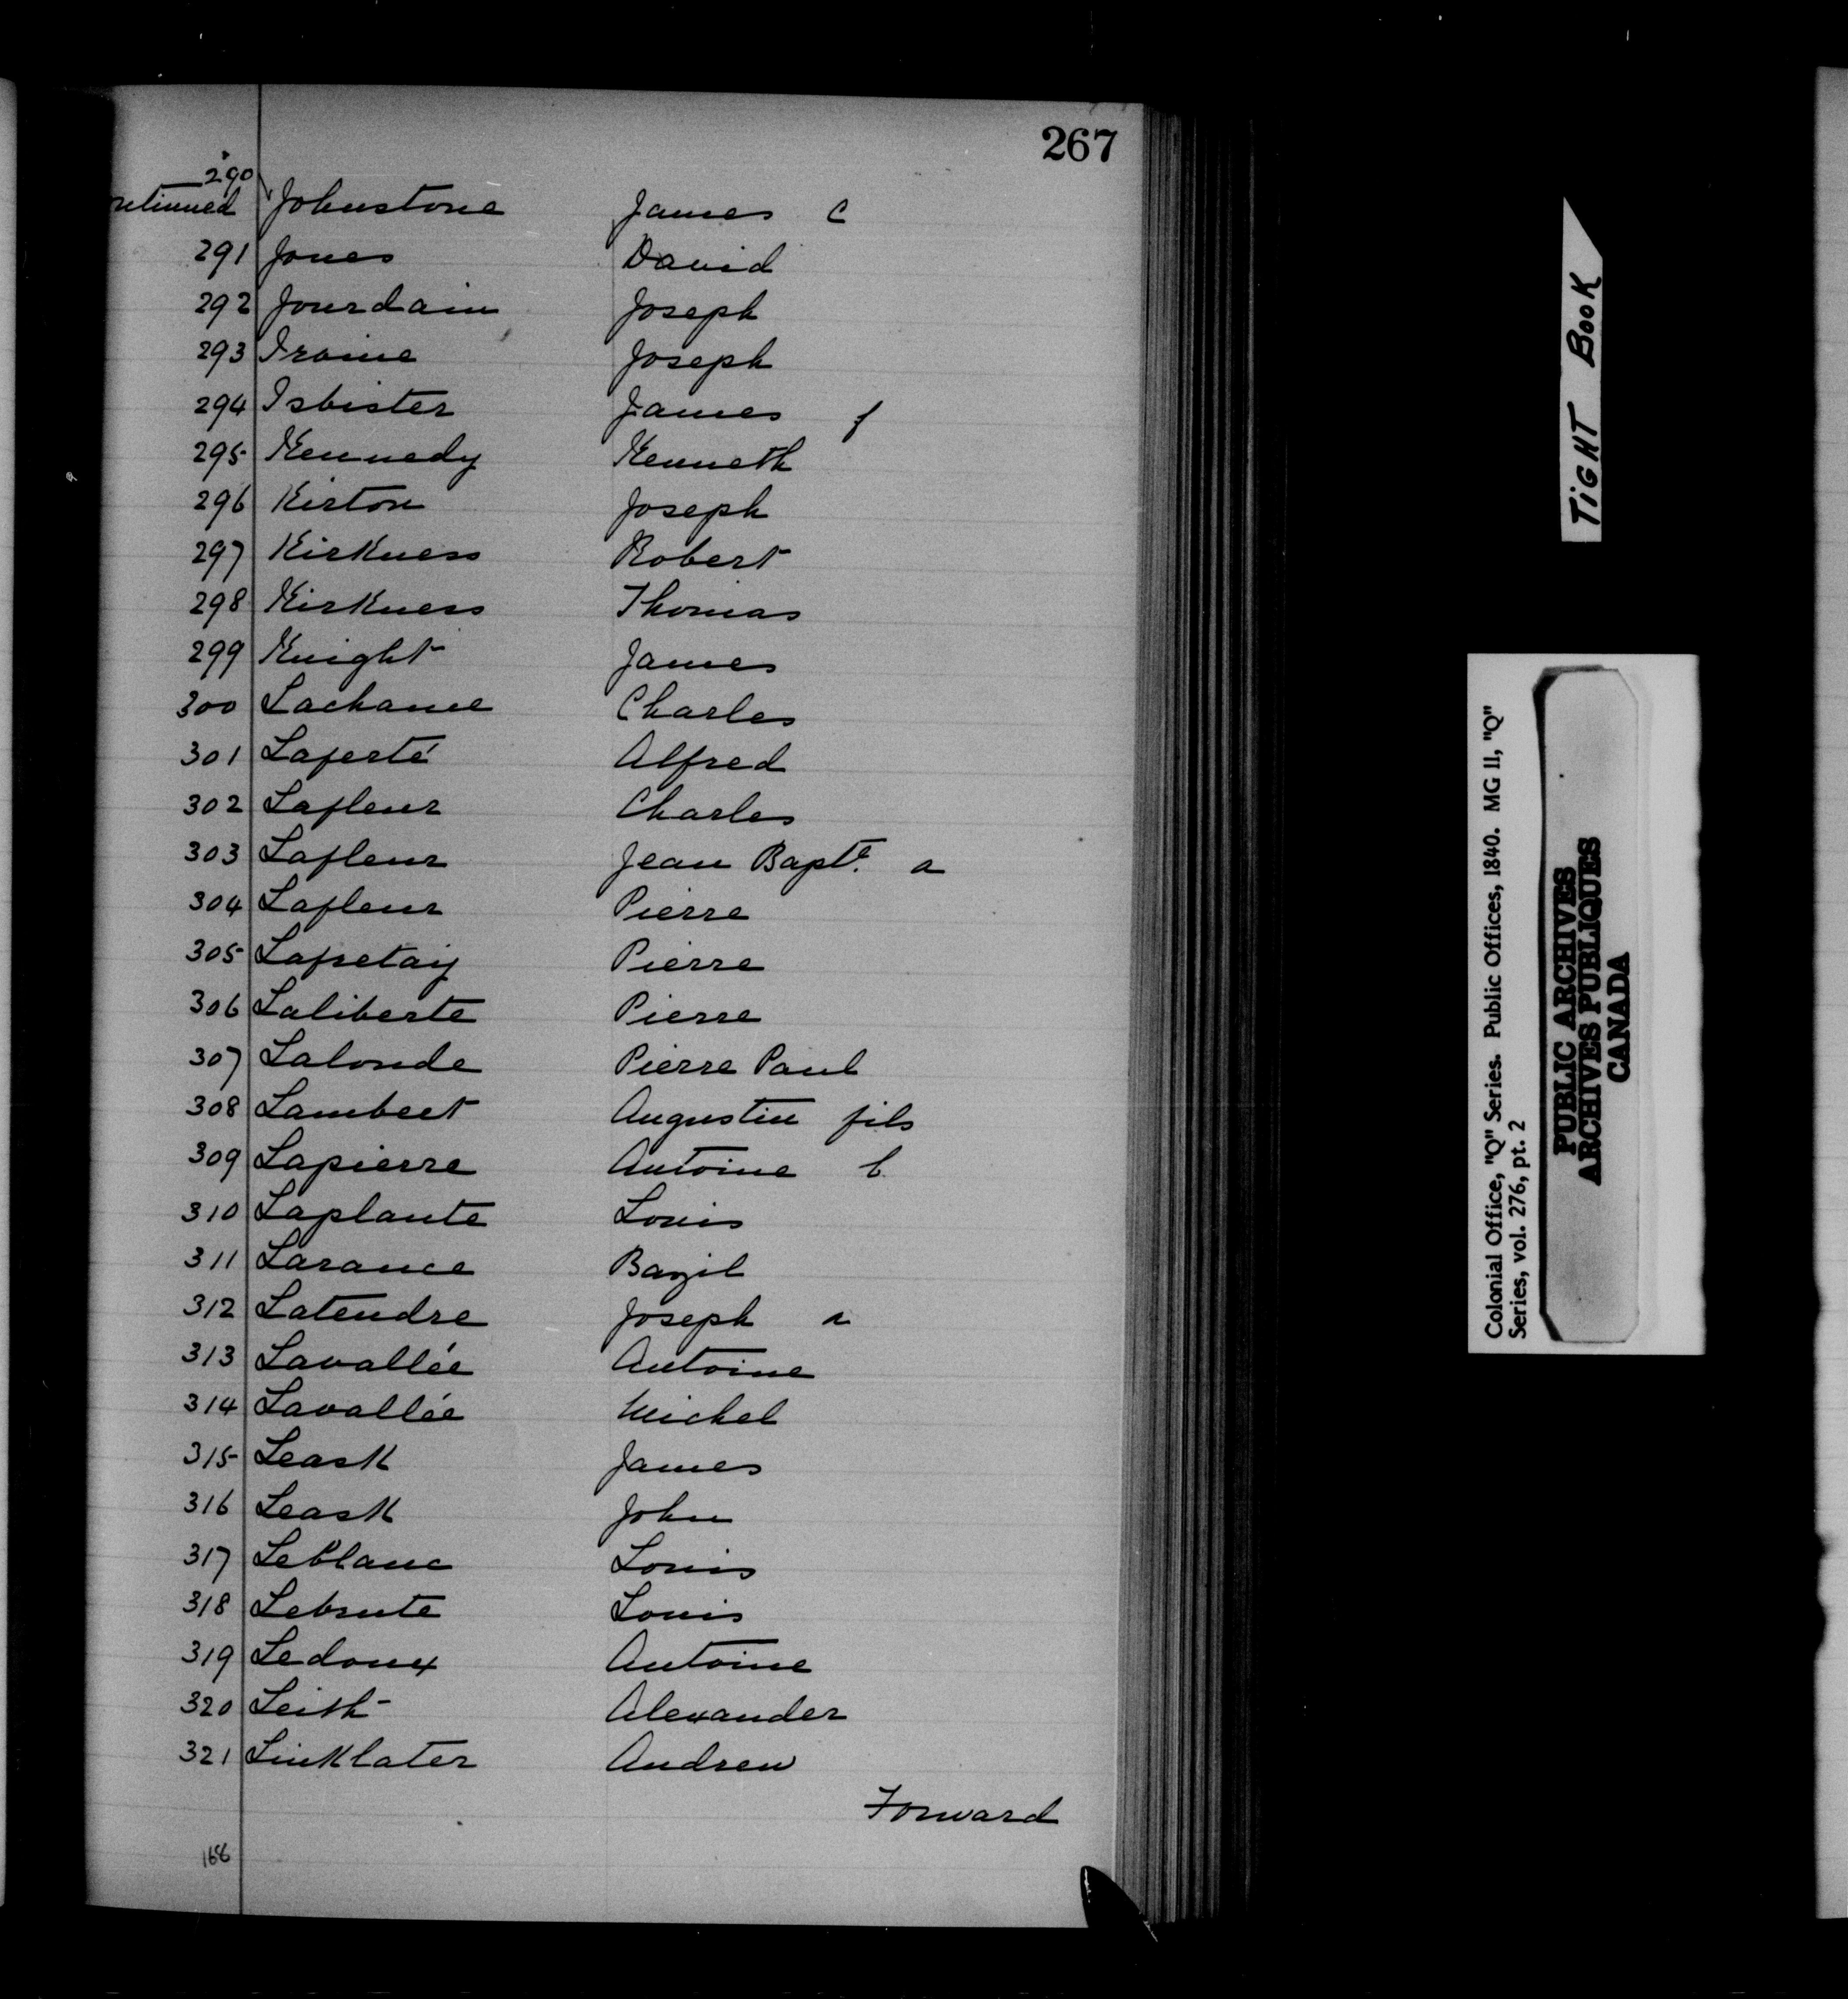 267
290 Johnstone James C
291 Jones David
292 Jourdain Joseph
293 Iroine Joseph
294 Isbister James f
295 Kennedy Kenneth
296 Kirton Joseph
297 Kirkness Robert
298 Kirkness Thomas
299 Knight James
300 Lachance Charles
301 Laferté Alfred
302 Lafleur Charles
303 Lafleur Jean Bapte. a
304 Lafleur Pierre
305 Pierre
306 Laliberte Pierre
307 Lalonde Pierre Paul
308 Lambert Augustin fils
309 Lapierre Antoine b
310 Laplante Louis
311 Larance Bazil
312 Latendre Joseph a
313 Lavallée Antoine
314 Lavallée Michel
315 Leask James
316 Leask John
317 Leblanc Louis
318 Lebrute Louis
319 Ledoux Antoine
320 Leith Alexander
321 Linklater Andrew
Forward
168
TIGHT BOOK
Colonial Office, "Q" Series. Public Offices, 1840. MG 11, "Q"
Series, vol. 276, pt. 2
PUBLIC ARCHIVES
ARCHIVES PUBLIQUES
CANADA